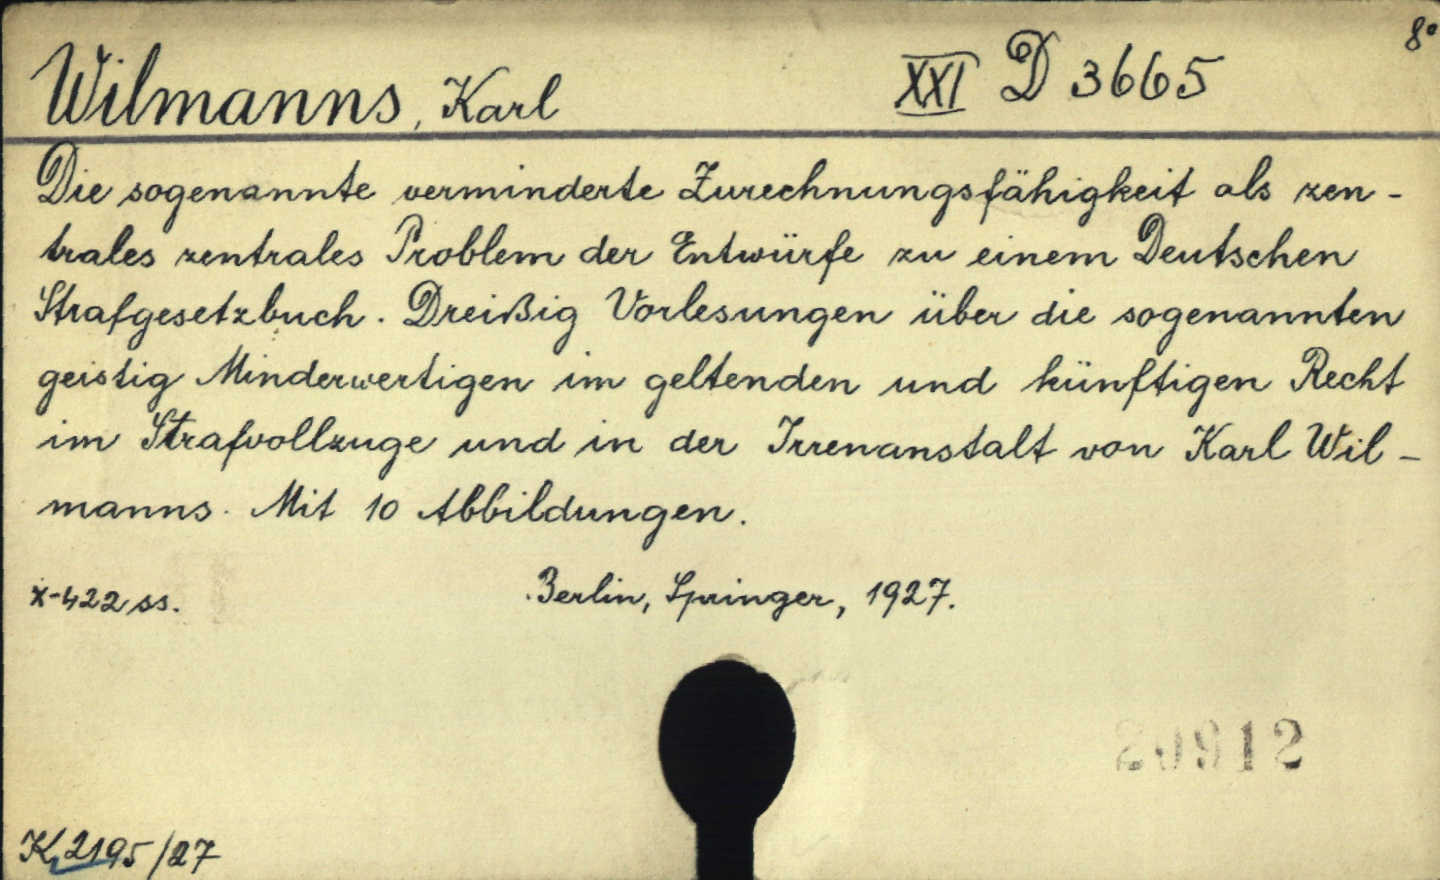 8°
Wilmanns, Karl XXI D 3665
Die sogenannte verminderte Zurechnungsfähigkeit als zen-
trales zentrales Problem der Entwürfe zu einem Deutschen
Strafgesetzbuch. Dreißig Vorlesungen über die sogenannten
geistig Minderwertigen im geltenden und künftigen Recht
im Strafvollzuge und in der Irrenanstalt von Karl Wil-
manns. Mit 10 Abbildungen.
X-422 ss. Berlin, Springer, 1927.
20912
K, 2195/27